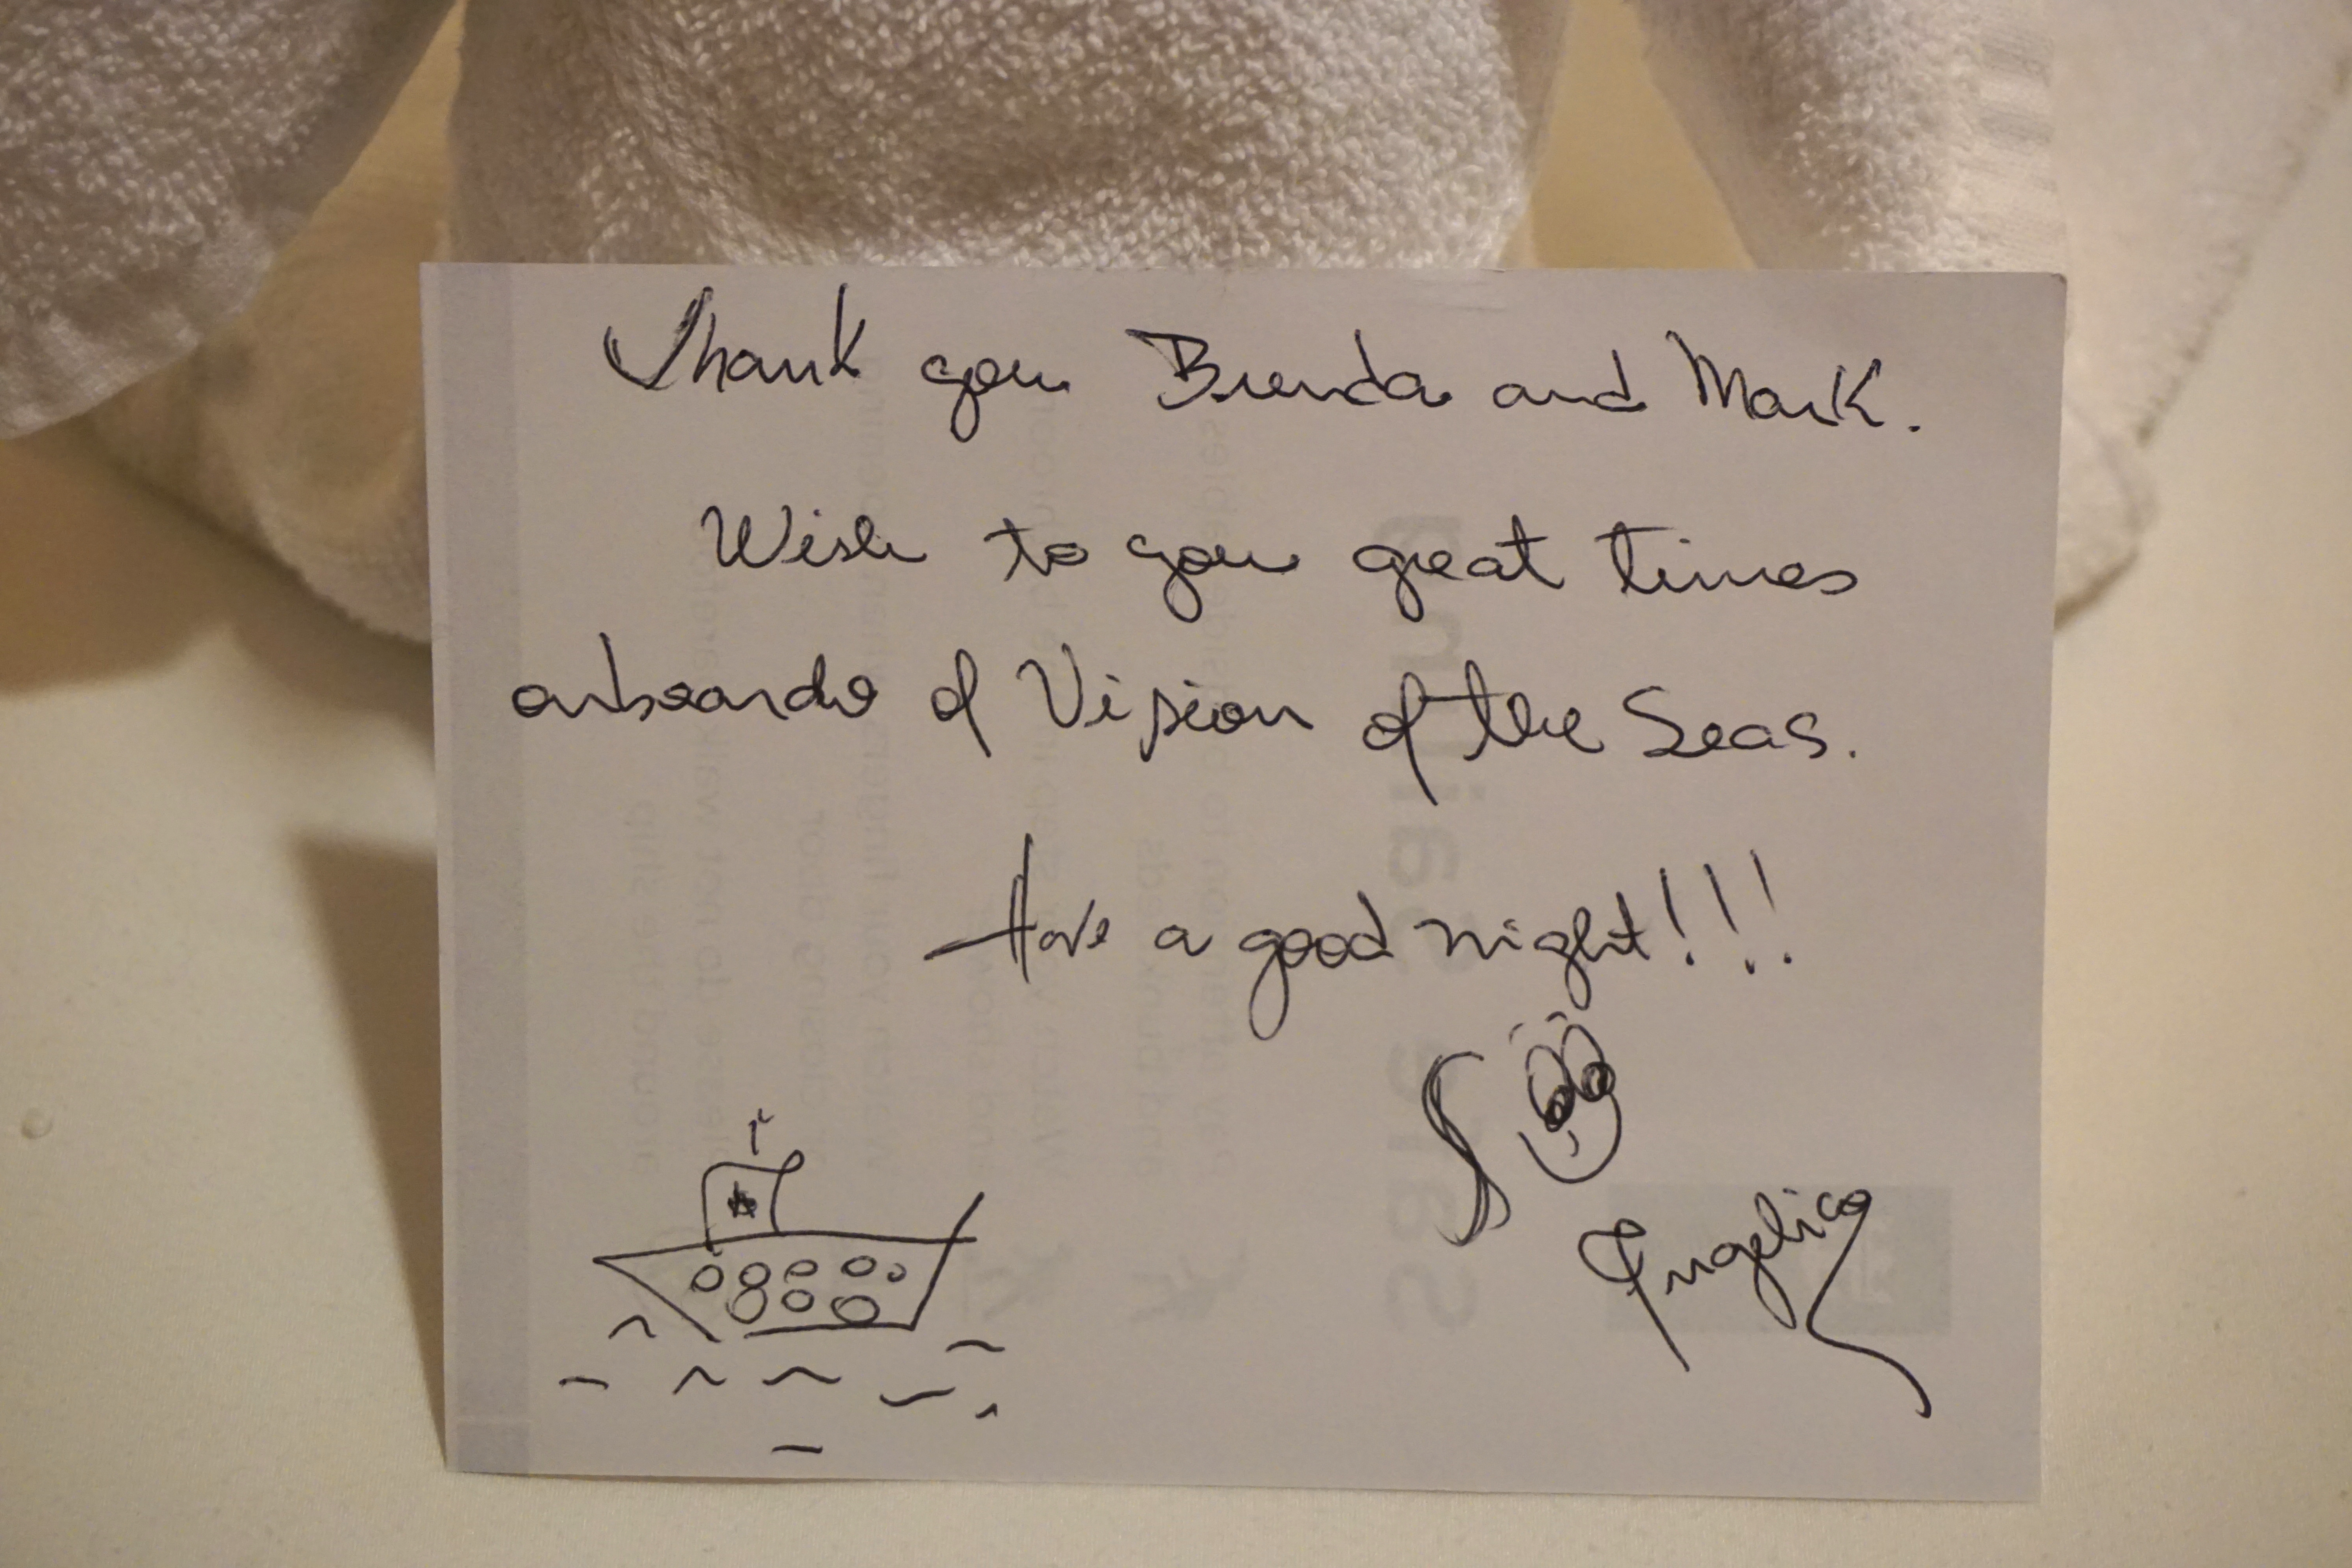 Thank you Brenda and Mark.
Wish to you great times
onboarde of Vision of the Seas.
Have a good night!!!
Angelica